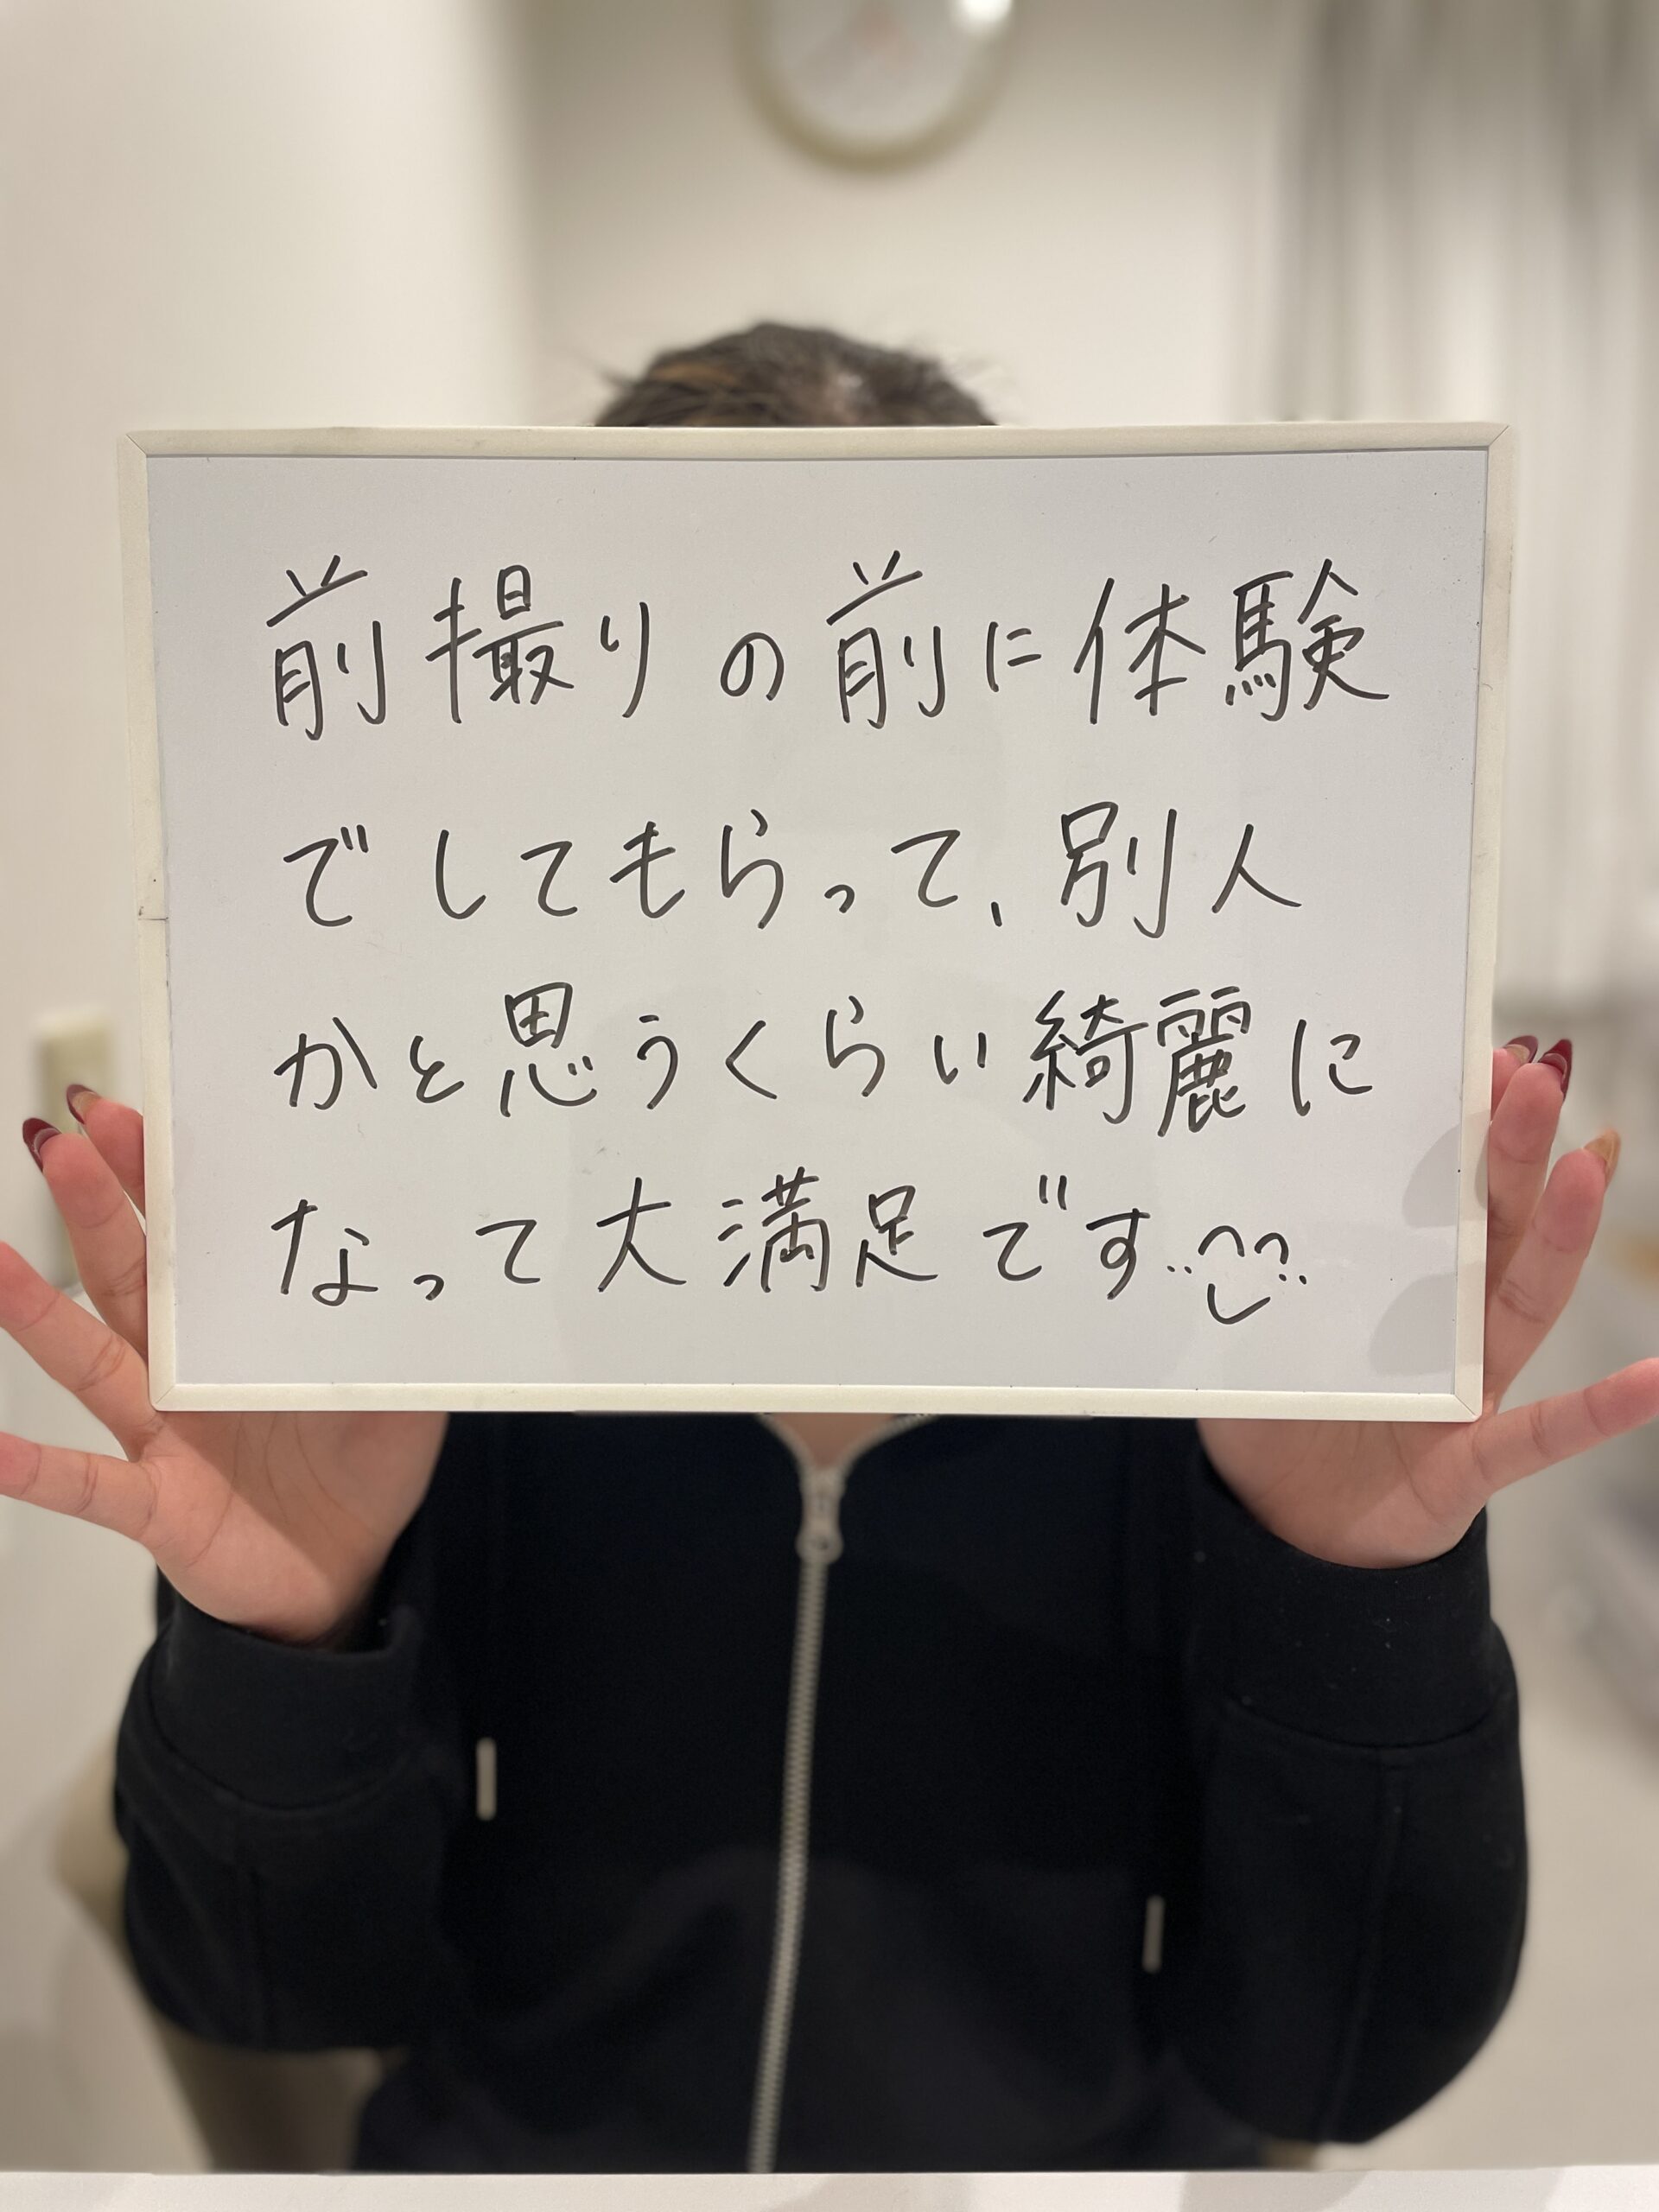 前撮りの前に体験
でしてもらって、別人
かと思うくらい綺麗に
なって大満足です